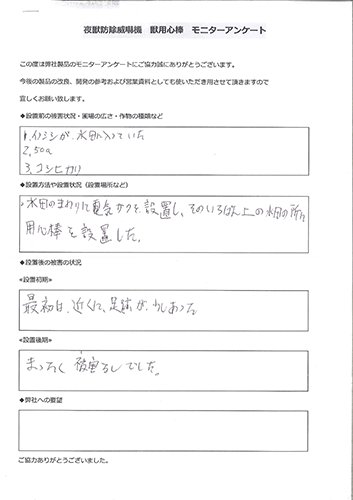 夜獣防除威嚇機 獣用心棒 モニターアンケート
この度は弊社製品のモニターアンケートにご協力誠にありがとうございます。
今後の製品の改良、開発の参考および営業資料としても使いただき用させて頂きますので
宜しくお願い致します。
◆設置前の被害状況・圃場の広さ・作物の種類など
1. イノシシが、水田に入っていた
2. 50a
3. コシヒカリ
◆設置方法や設置状況（設置場所など）
・水田のまわりに電気サクを設置し、そのいちばん上の水田の所に
用心棒を設置した。
◆設置後の被害の状況
≪設置初期≫
最初は、近くに、足跡が、少しあった
≪設置後期≫
まったく 被害なしでした。
◆弊社への要望
ご協力ありがとうございました。